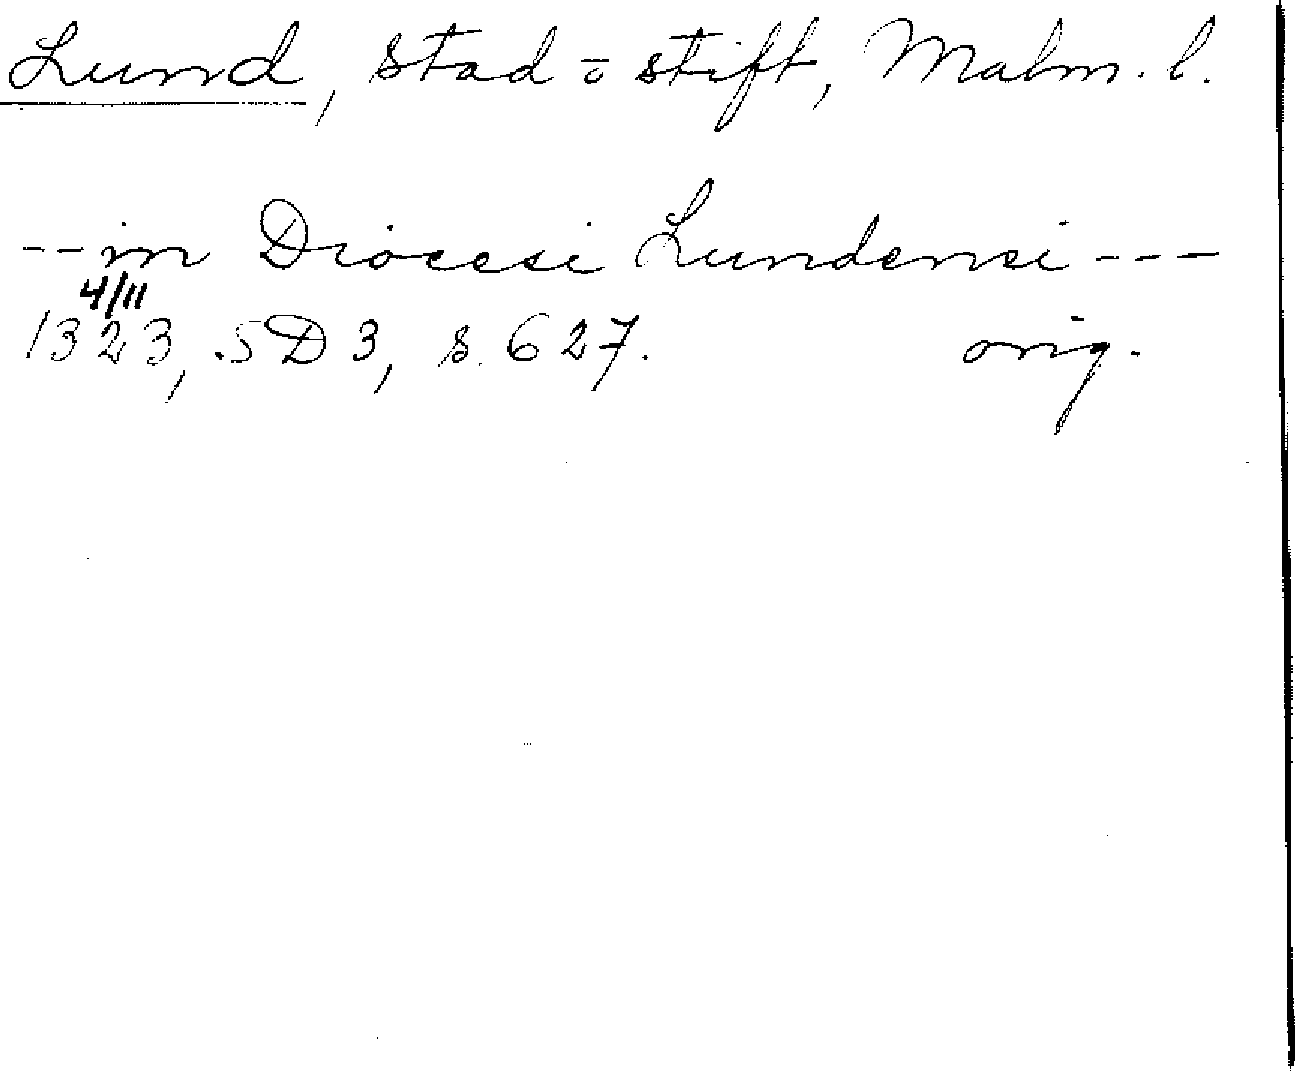 Lund, stad o stift, Malm. l.
-- in Diocesi Lundensi ---
4/11
1323, SD 3, s. 627. orig.